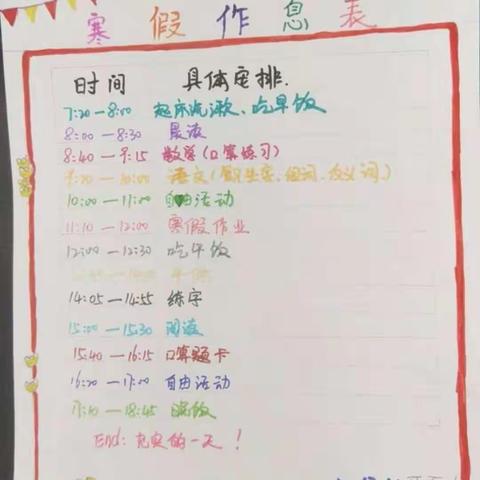 寒假作息表
时间 具体安排.
7:20—8:00 起床洗漱、吃早饭
8:00—8:30 晨读
8:40—9:15 数学(口算练习)
9:20—10:00 语文(组词、反义词)
10:00—11:00 自由活动
11:10—12:00 寒假作业
12:00—12:30 吃午饭
14:05—14:55 练字
15:00—15:30 阅读
15:40—16:15 口算题卡
16:20—17:00 自由活动
17:10—18:45 晚饭
End:充实的一天!